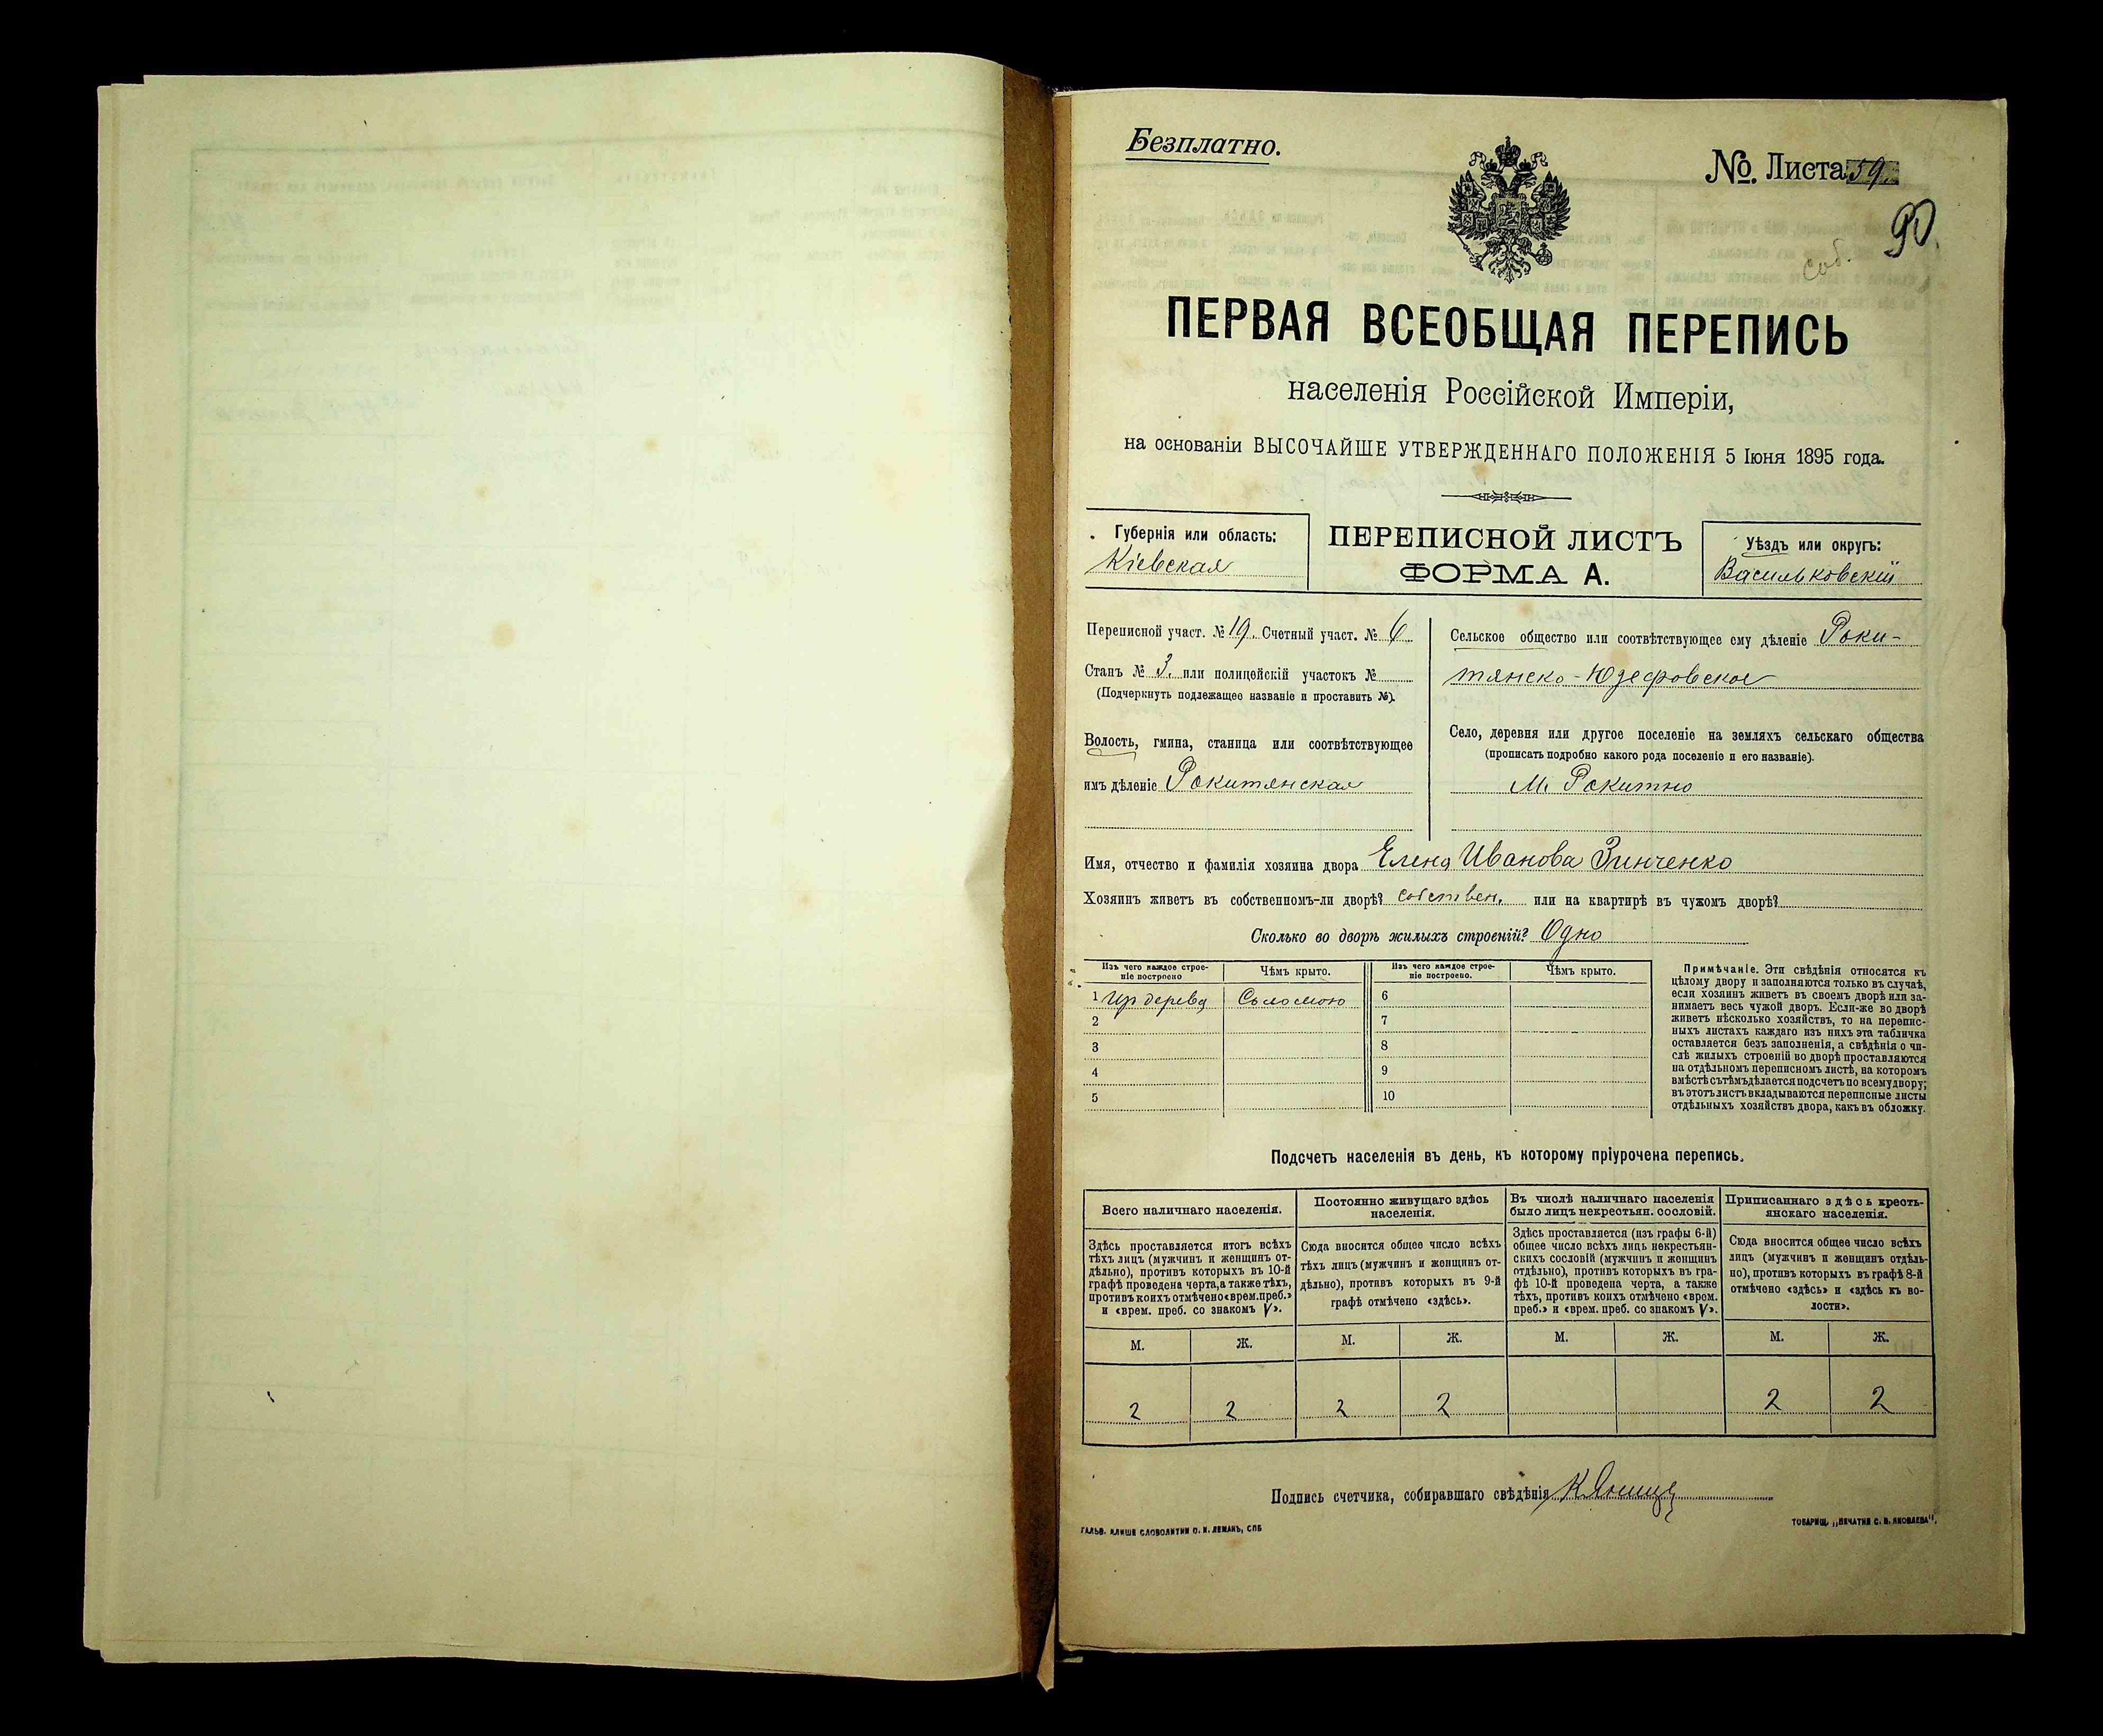 Безплатно.
№. Листа 59.
90.
соб.
ПЕРВАЯ ВСЕОБЩАЯ ПЕРЕПИСЬ
населенія Россійской Имперіи,
на основаніи ВЫСОЧАЙШЕ УТВЕРЖДЕННАГО ПОЛОЖЕНІЯ 5 Іюня 1895 года.
Губернія или область:
Кіевская
ПЕРЕПИСНОЙ ЛИСТЪ
ФОРМА А.
Уѣздъ или округъ:
Васильковскій
Переписной участ. № 19. Счетный участ. № 6
Станъ № 3. или полицейскій участокъ №
(Подчеркнуть подлежащее названіе и проставить №).
Волость, гмина, станица или соотвѣтствующее
имъ дѣленіе Рокитянская
Сельское общество или соотвѣтствующее ему дѣленіе Роки-
тянско-Юзефовское
Село, деревня или другое поселеніе на земляхъ сельскаго общества
(прописать подробно какого рода поселеніе и его названіе).
М. Рокитно
Имя, отчество и фамилія хозяина двора Елена Иванова Зинченко
Хозяинъ живетъ въ собственномъ-ли дворѣ? собствен. или на квартирѣ въ чужомъ дворѣ?
Сколько во дворѣ жилыхъ строеній? Одно
Изъ чего каждое строе-
ніе построено
Чѣмъ крыто.
Изъ чего каждое строе-
ніе построено.
Чѣмъ крыто.
1 Из дерева Соломою 6
2 7
3 8
4 9
5 10
Примѣчаніе. Эти свѣдѣнія относятся къ
цѣлому двору и заполняются только въ случаѣ,
если хозяинъ живетъ въ своемъ дворѣ или за-
нимаетъ весь чужой дворъ. Если-же во дворѣ
живетъ нѣсколько хозяйствъ, то на перепис-
ныхъ листахъ каждаго изъ нихъ эта табличка
оставляется безъ заполненія, а свѣдѣнія о чи-
слѣ жилыхъ строеній во дворѣ проставляются
на отдѣльномъ переписномъ листѣ, на которомъ
вмѣстѣ съ тѣмъ дѣлается подсчетъ по всему двору;
въ этотъ листъ вкладываются переписные листы
отдѣльныхъ хозяйствъ двора, какъ въ обложку.
Подсчетъ населенія въ день, къ которому пріурочена перепись.
Всего наличнаго населенія.
Здѣсь проставляется итогъ всѣхъ
тѣхъ лицъ (мужчинъ и женщинъ от-
дѣльно), противъ которыхъ въ 10-й
графѣ проведена черта, а также тѣхъ,
противъ коихъ отмѣчено «врем. преб.»
и «врем. преб. со знакомъ V».
Постоянно живущаго здѣсь
населенія.
Сюда вносится общее число всѣхъ
тѣхъ лицъ (мужчинъ и женщинъ от-
дѣльно), противъ которыхъ въ 9-й
графѣ отмѣчено «здѣсь».
Въ числѣ наличнаго населенія
было лицъ некрестьян. сословій.
Здѣсь проставляется (изъ графы 6-й)
общее число всѣхъ лицъ некрестьян-
скихъ сословій (мужчинъ и женщинъ
отдѣльно), противъ которыхъ въ гра-
фѣ 10-й проведена черта, а также
тѣхъ, противъ коихъ отмѣчено «врем.
преб.» и «врем. преб. со знакомъ V».
Приписаннаго здѣсь кресть-
янскаго населенія.
Сюда вносится общее число всѣхъ
лицъ (мужчинъ и женщинъ отдѣль-
но), противъ которыхъ въ графѣ 8-й
отмѣчено «здѣсь» и «здѣсь къ во-
лости».
М. Ж. М. Ж. М. Ж. М. Ж.
2 2 2 2 2 2
Подпись счетчика, собиравшаго свѣдѣнія
ГАЛЬВ. КЛИШЕ СЛОВОЛИТНИ О. И. ЛЕМАНЪ, СПБ
ТОВАРИЩ. „ПЕЧАТНЯ С. П. ЯКОВЛЕВА".